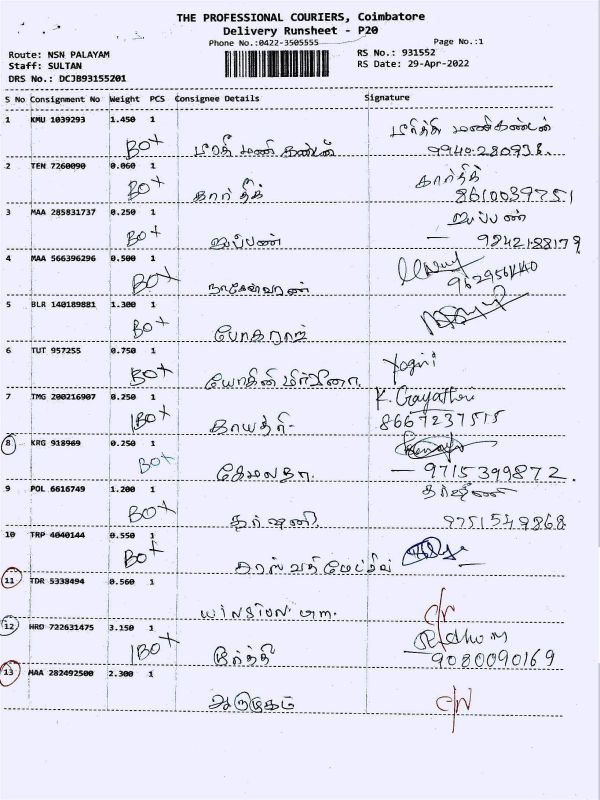 THE PROFESSIONAL COURIERS, Coimbatore
Delivery Runsheet - P20
Phone No.:0422-3505555
Page No.:1
Route: NSN PALAYAM
RS No.: 931552
Staff: SULTAN
RS Date: 29-Apr-2022
DRS No.: DCJB93155201
S No Consignment No Weight PCS Consignee Details Signature
1 KMU 1039293 1.450 1
BOX
2 TEN 7260090 0.060 1
BOX கார்த்தீக் கார்த்திக்
8610039751
3 MAA 285831737 0.250 1
BOX ஐயப்பண் ஐயப்பண்
4 MAA 566396296 0.500 1
BOX
5 BLR 140189881 1.300 1
BOX போகராஜ்
6 TUT 957255 0.750 1
BOX Yogini
7 TMG 200216907 0.250 1 K. Gayathri
BOX காயத்ரி 8667237515
8 KRG 918969 0.250 1
BOX ஹேமலதா. 9715399872.
9 POL 6616749 1.200 1 தர்ஷினி
BOX தர்ஷணி 9751549868
10 TRP 4040144 0.550 1
BOX
11 TDR 5338494 0.560 1
12 HRD 722631475 3.150 1
1BOX 9080090169
13 MAA 282492500 2.300 1
ஆறுமுகம்